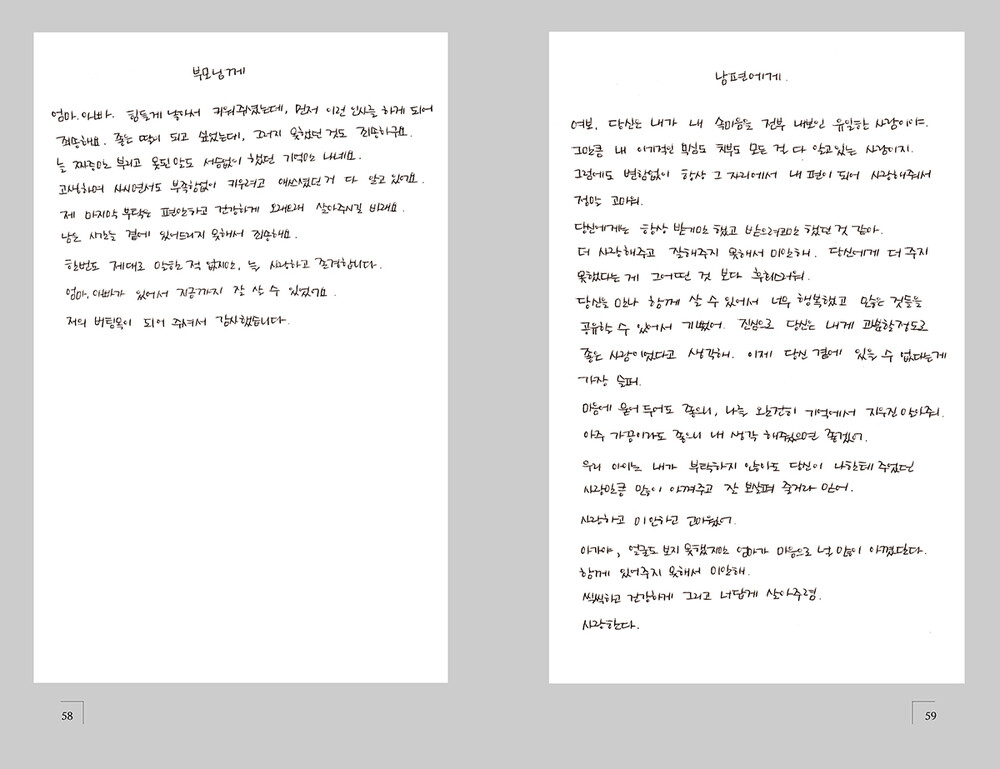 부모님께
엄마.아빠. 힘들게 낳아서 키워주셨는데, 먼저 이런 인사를 하게 되어
죄송해요. 좋은 딸이 되고 싶었는데, 그러지 못했던 것도 죄송하구요.
늘 짜증만 부리고 못된 말도 서슴없이 했던 기억만 나네요.
고생하며 사시면서도 부족함없이 키우려고 애쓰셨던 거 다 알고 있어요.
제 마지막 부탁은 편안하고 건강하게 오래오래 살아주시길 바래요.
남은 시간을 곁에 있어드리지 못해서 죄송해요.
한번도 제대로 말한 적 없지만, 늘 사랑하고 존경합니다.
엄마.아빠가 있어서 지금까지 잘 살 수 있었어요.
저의 버팀목이 되어 주셔서 감사했습니다.
58
남편에게.
여보, 당신은 내가 내 속마음을 전부 내보인 유일한 사람이야.
그만큼 내 이기적인 욕심도 치부도 모든 걸 다 알고 있는 사람이지.
그럼에도 변함없이 항상 그 자리에서 내 편이 되어 사랑해줘서
정말 고마워.
당신에게는 항상 받기만 했고 받으려고만 했던 것 같아.
더 사랑해주고 잘해주지 못해서 미안해. 당신에게 더 주지
못했다는 게 그 어떤 것 보다 후회스러워.
당신을 만나 함께 살 수 있어서 너무 행복했고 많은 것들을
공유할 수 있어서 기뻤어. 진심으로 당신은 내게 과분할정도로
좋은 사람이었다고 생각해. 이제 당신 곁에 있을 수 없다는게
가장 슬퍼.
마음에 묻어 두어도 좋으니, 나를 완전히 기억에서 지우진 말아줘.
아주 가끔이라도 좋으니 내 생각 해줬으면 좋겠어.
우리 아이는 내가 부탁하지 않아도 당신이 나한테 주었던
사랑만큼 많이 아껴주고 잘 보살펴 줄거라 믿어.
사랑하고 미안하고 고마웠어.
아가야, 얼굴도 보지 못했지만 엄마가 마음으로 널 많이 아꼈단다.
함께 있어주지 못해서 미안해.
씩씩하고 건강하게 그리고 너답게 살아주렴.
사랑한다.
59